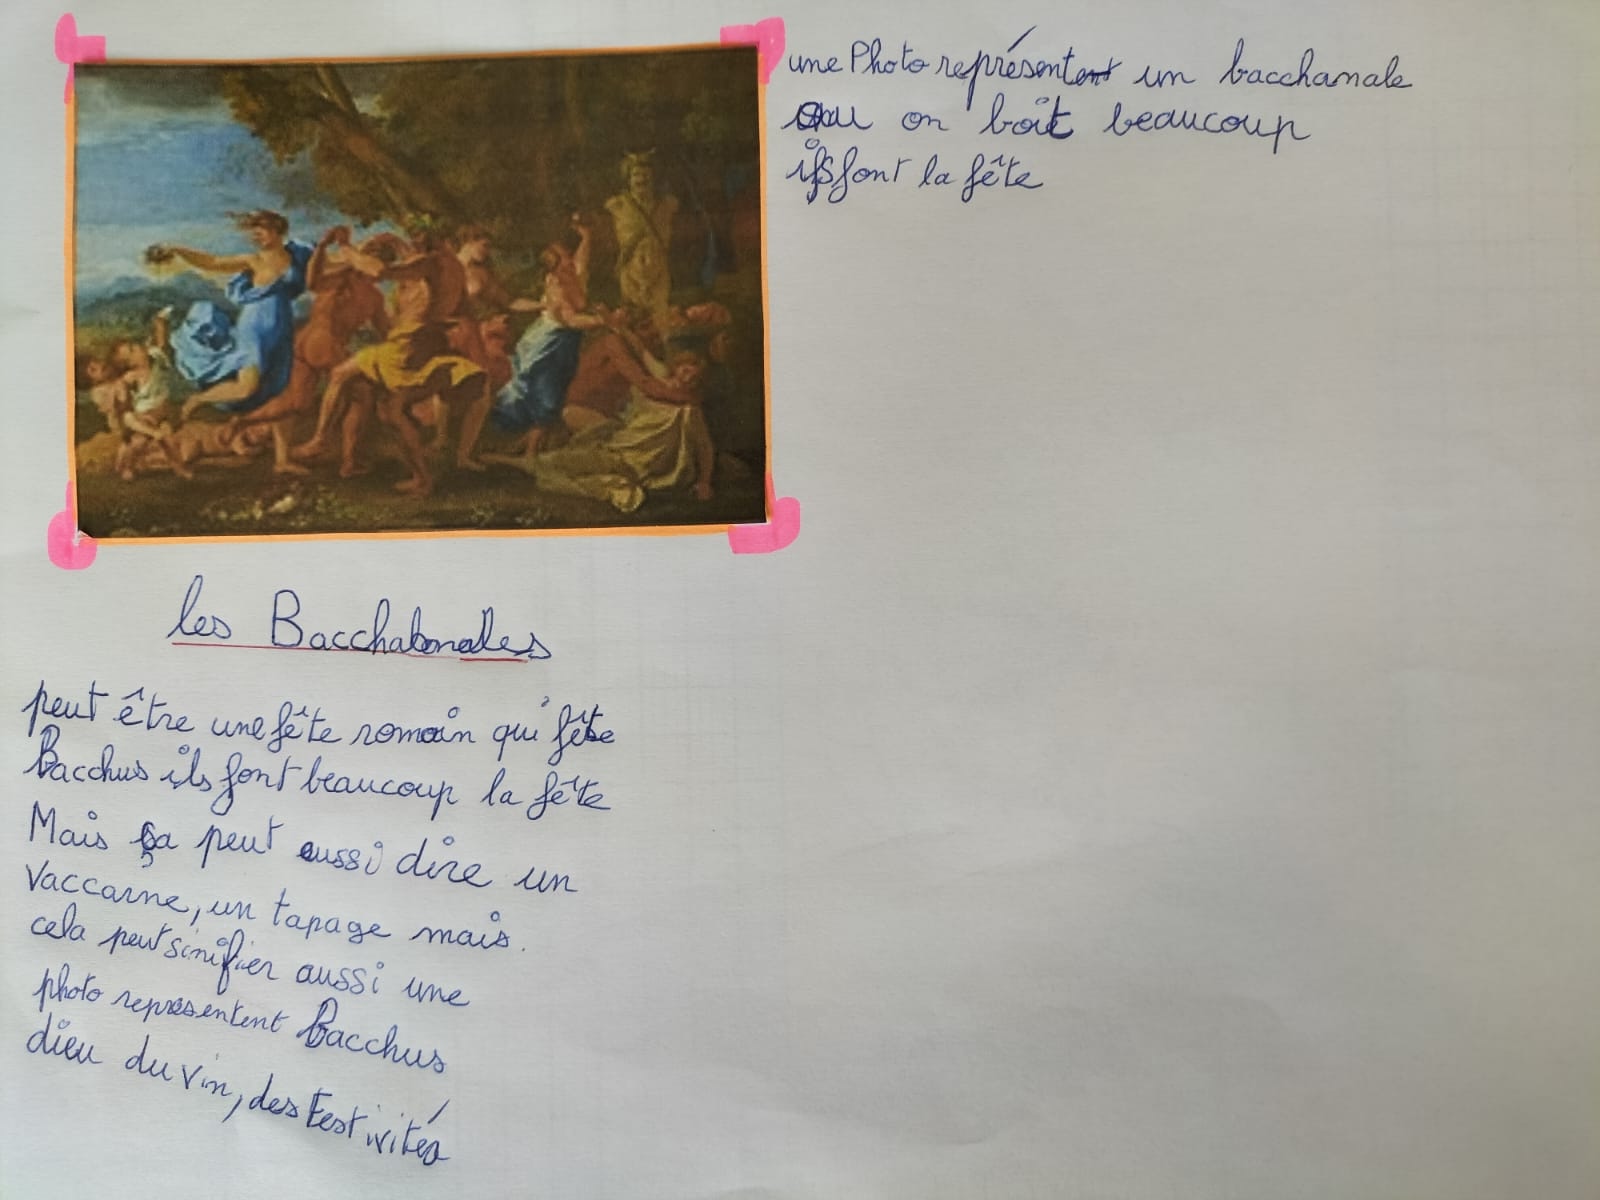 une Photo représentent un bacchanale
ou on boit beaucoup
ils font la fête
les Bacchanales
peut être une fête romain qui fête
Bacchus ils font beaucoup la fête
Mais ça peut aussi dire un
vaccarne, un tapage mais.
cela peut sinifier aussi une
photo representent Bacchus
dieu du vin, des Festivités